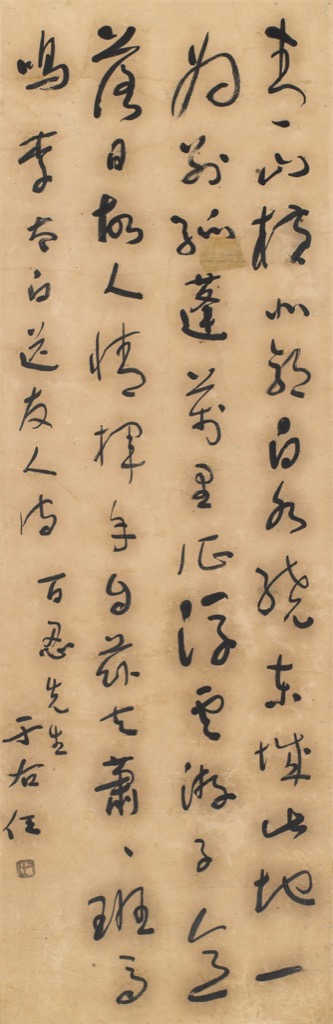 青山橫北郭白水繞東城此地一
為別孤蓬萬里征浮雲游子意
落日故人情揮手自茲去蕭、班馬
鳴 李太白送友人詩
百忍先生
于右任